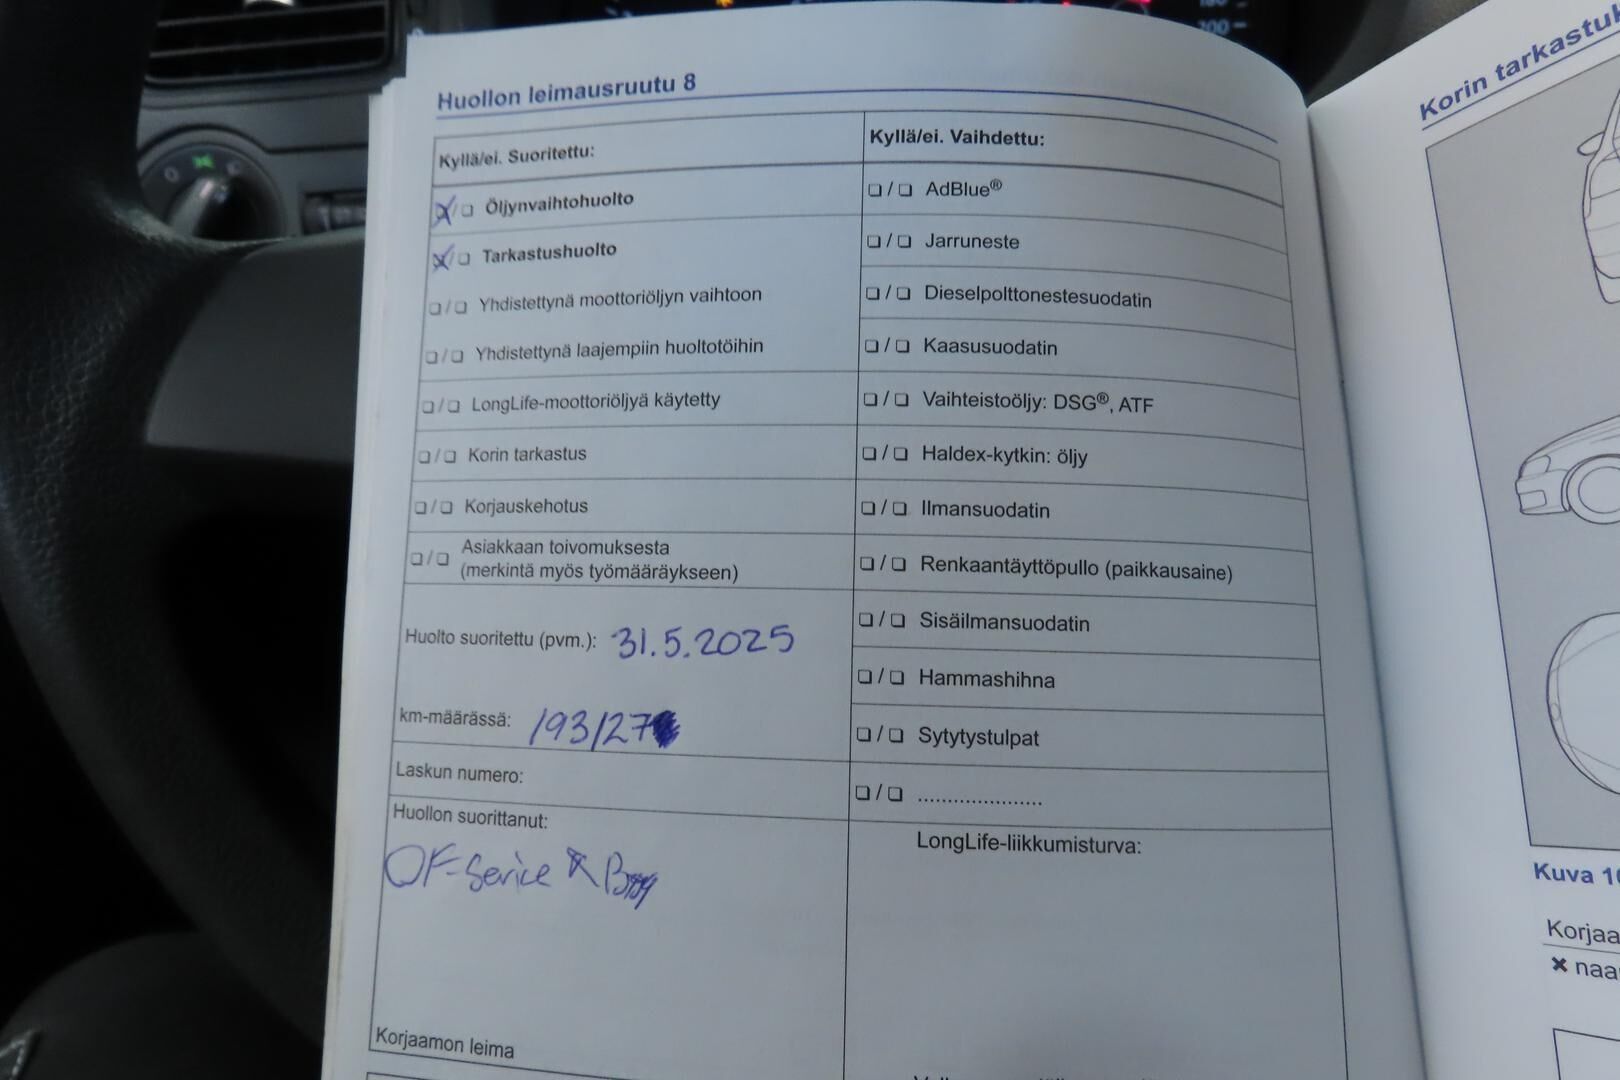 Huollon leimausruutu 8
Kyllä/ei. Suoritettu:
Öljynvaihtohuolto
Tarkastushuolto
Yhdistettynä moottoriöljyn vaihtoon
Yhdistettynä laajempiin huoltotöihin
LongLife-moottoriöljyä käytetty
Korin tarkastus
Korjauskehotus
Asiakkaan toivomuksesta
(merkintä myös työmääräykseen)
Huolto suoritettu (pvm.): 31.5.2025
km-määrässä: 193127
Laskun numero:
Huollon suorittanut:
OF-Service
Korjaamon leima
Kyllä/ei. Vaihdettu:
AdBlue®
Jarruneste
Dieselpolttonestesuodatin
Kaasusuodatin
Vaihteistoöljy: DSG®, ATF
Haldex-kytkin: öljy
Ilmansuodatin
Renkaantäyttöpullo (paikkausaine)
Sisäilmansuodatin
Hammashihna
Sytytystulpat
.....................
LongLife-liikkumisturva:
Korin
Kuva